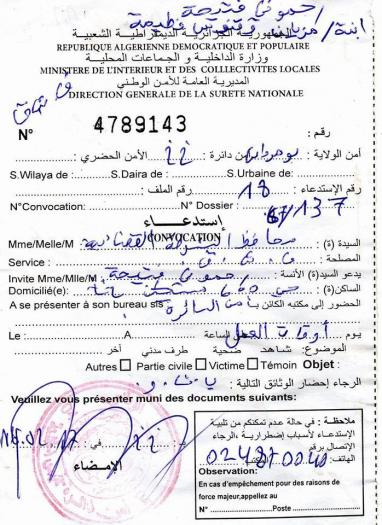 حموش فتيحة
ابنة / مزيان و
الجمهورية الجزائرية الديمقراطية الشعبية
REPUBLIQUE ALGERIENNE DEMOCRATIQUE ET POPULAIRE
وزارة الداخلية و الجماعات المحلية
MINISTERE DE L'INTERIEUR ET DES COLLLECTIVITES LOCALES
المديرية العامة للأمن الوطني
DIRECTION GENERALE DE LA SURETE NATIONALE
N° 4789143 رقم :
أمن الولاية : بومرداس أمن دائرة : الأمن الحضري :
S.Wilaya de : S.Daira de : S.Urbaine de:
رقم الإستدعاء : 18 رقم الملف : 137
N°Convocation: N° Dossier :
إستدعـــاء
CONVOCATION
السيدة (ة) : محافظ الشرطة القضائية
Mme/Melle/M
المصلحة :
Service :
يدعو السيد(ة) الأنسة : حموش فتيحة
Invite Mme/Mlle/M
الساكن(ة)
Domicilié(e):
الحضور إلى مكتبه الكائن بـ أمن الدائرة
A se présenter à son bureau sis
يوم أوقات العمل الساعة
Le :
الموضوع: شاهد ضحية طرف مدني آخر
Autres Partie civile Victime Témoin Objet :
الرجاء إحضار الوثائق التالية :
Veuillez vous présenter muni des documents suivants:
في :
الإمضـاء
ملاحظـة : في حالة عدم تمكنكم من تلبية
الإستدعاء لأسباب إضطرارية ،الرجاء
الإتصال برقم
الهاتف:
Observation:
En cas d'empêchement pour des raisons de
force majeur,appelez au
N° Poste